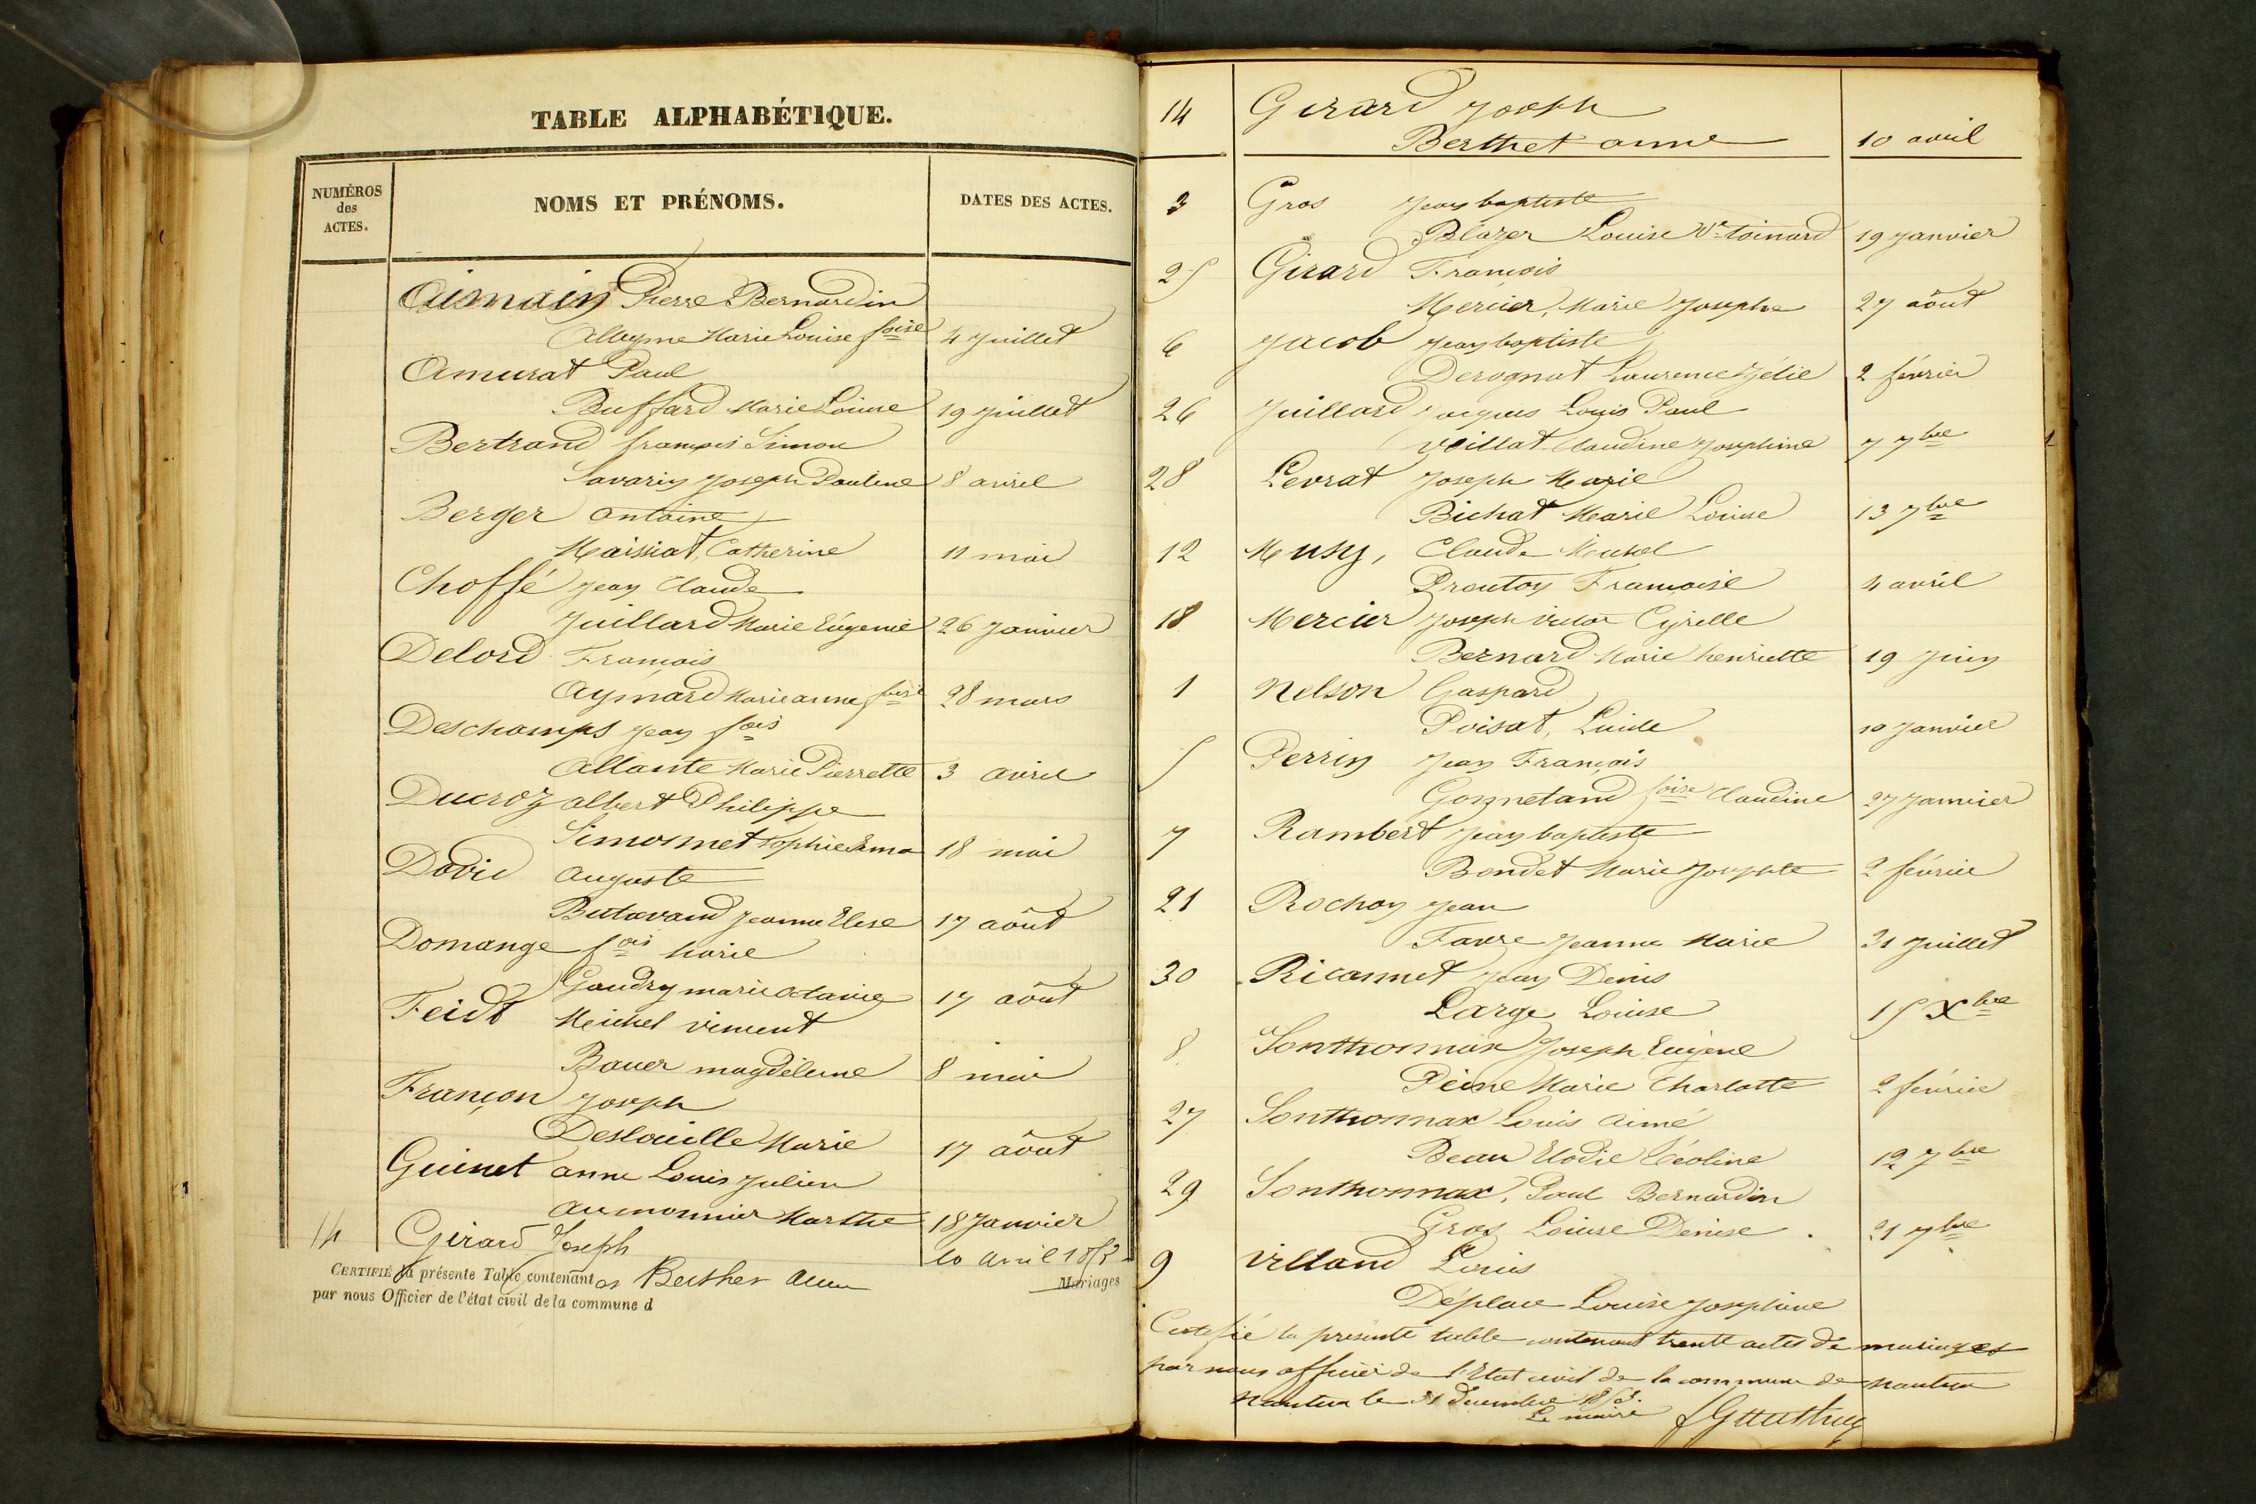 TABLE ALPHABÉTIQUE.
NUMÉROS
des
ACTES.
NOMS ET PRÉNOMS.
DATES DES ACTES.
Aimain Pierre Bernardin
Marie Louise foise 4 Juillet
Amurat Paul
Buffard Marie Louise 19 Juillet
Bertrand françois Simon
Savarin Joseph Pauline 8 avril
Berger antoine
Maissiat, Catherine 11 mai
Choffé Jean Claude
Juillard Marie Eugenie 26 Janvier
Delord François
Aymard Marie anne foise 28 mars
Deschamps Jean fois
Allante Marie Pierrette 3 avril
Ducroz albert Philippe
Simonnet Sophie Ema 18 mai
David auguste
Butavand Jeanne Elise 17 aôut
Domange fois Marie
Gaudry marie octavie 17 aôut
Feidt Meichel vincent
Bauer magdeleine 8 mai
Françon Joseph
Marie 17 aôut
Guinet anne Louis Julien
aumonnier Marthe 18 Janvier
14 Girard Joseph
10 avril 1853
CERTIFIÉ la présente Table, contenant Berthet anne Mariages
par nous Officier de l'état civil de la commune d
14 Girard Joseph
Berthet anne 10 avril
3 Gros Jean baptiste
Blazer Louise Ve toinard 19 Janvier
25 Girard François
Mercier, Marie Josephe 27 aôut
6 Jacob Jean baptiste
Derognat Laurence Zélie 2 février
26 Juillard Jacques Louis Paul
Veillat Claudine Josephine 7 7bre
28 Levrat Joseph Marie
Bichat Marie Louise 13 7bre
12 Musy, Claude
Françoise 4 avril
18 Mercier Joseph victor Cyrille
Bernard Marie henriette 19 Juin
1 Nelson Gaspard
Poisat, Lucile 10 Janvier
5 Perrin Jean François
foise Claudine 27 Janvier
7 Rambert Jean baptiste
Bondet Marie Josephte 2 février
21 Rochon Jean
Favre Jeanne Marie 31 Juillet
30 Ricannet Jean Denis
Large Louise 15 Xbre
8 Sonthonnax Joseph Eugène
Peine Marie Charlotte 2 février
27 Sonthonnax Louis aimé
Beau Elodie Léoline 12 7bre
29 Sonthonnax, Paul Bernardin
Gros Louise Denise . 21 7bre
9 Villand Louis
Déplace Louise Josephine
Certifié la présente table contenant trente actes de mariages
par nous officier de l'Etat civil de la commune de nantua
Nantua le 31 Decembre 1853.
Le maire